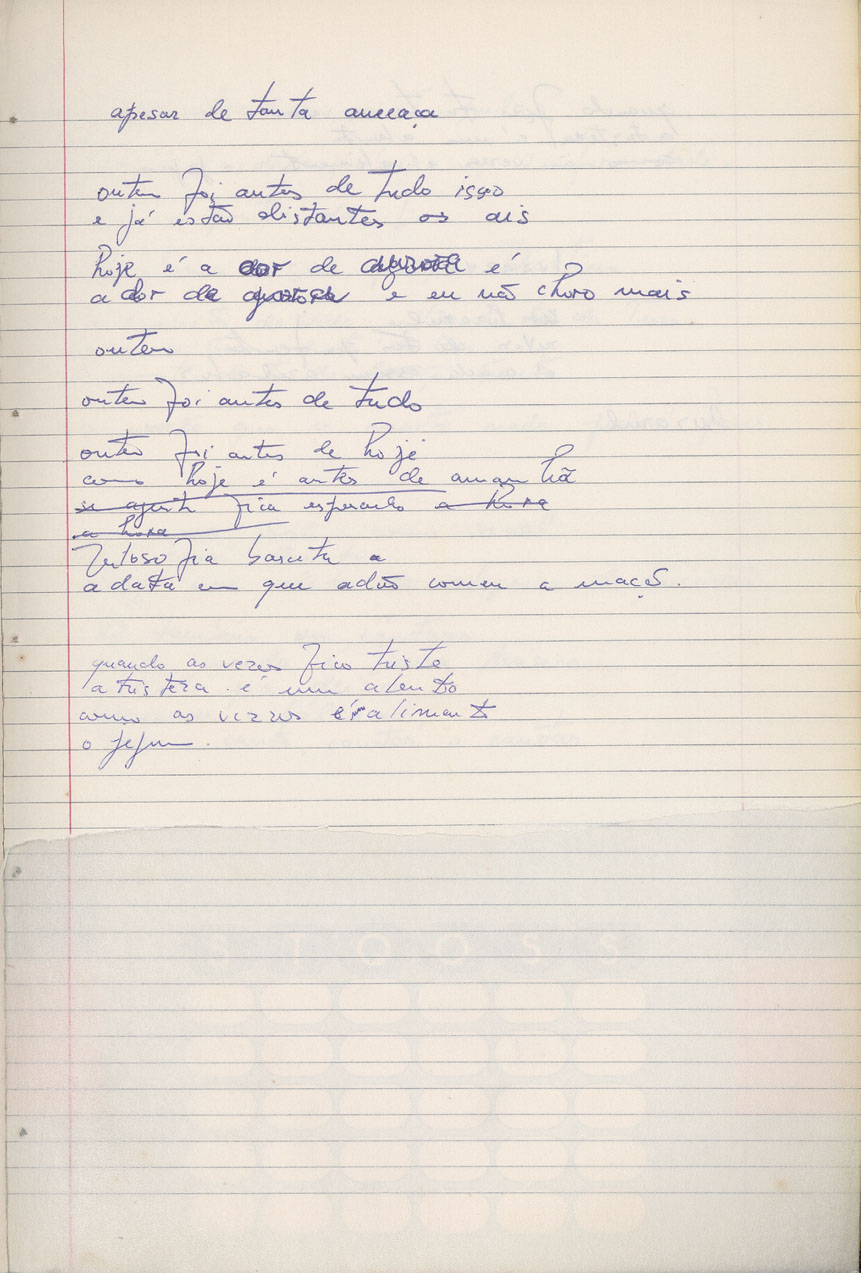 apesar de tanta ameaça
ontem foi antes de tudo isso
e já estão distantes os ais
hoje é a dor de agora é
a dor de agora e eu não choro mais
ontem
ontem foi antes de tudo
ontem foi antes de hoje
como hoje é antes de amanhã
se a gente fica esperando a hora
a hora
a
a data em que adão comeu a maçã.
quando as vezes fico triste
a tristeza é um alento
como as vezes é alimento
o jejum.